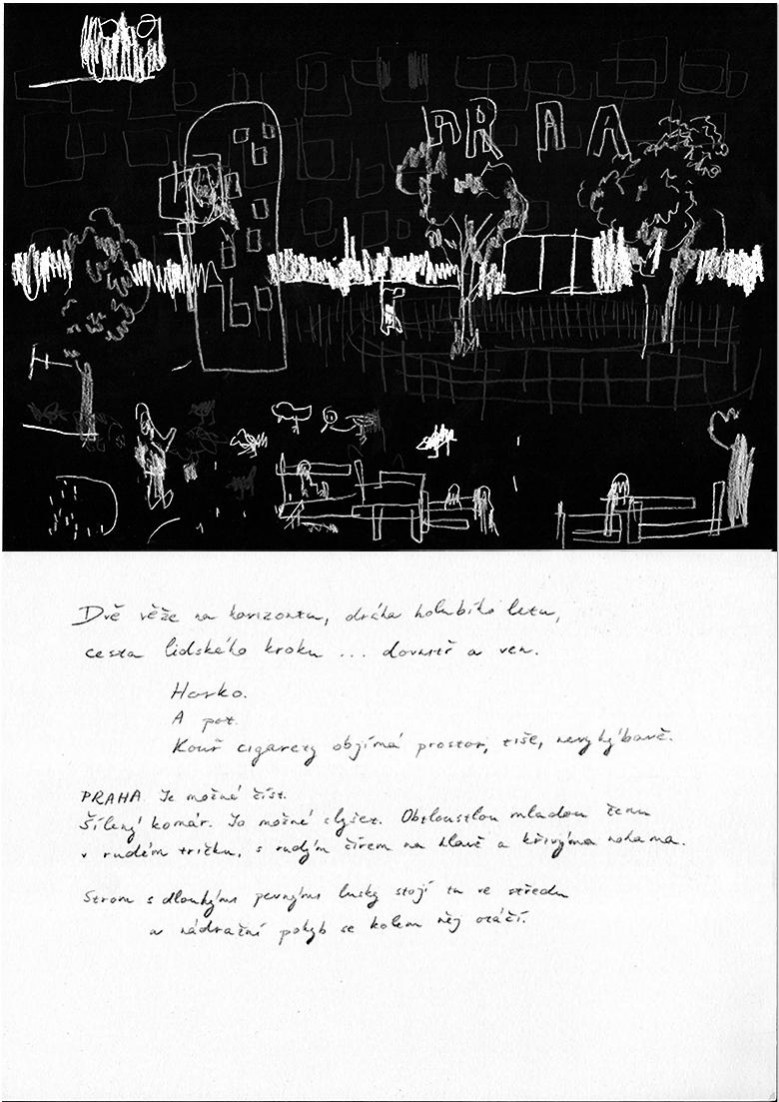 PRAA
Dvě věže na horizontu, dráha holubího letu,
cesta lidského kroku ... dovnitř a ven.
Horko.
A pot.
Kouř cigarety objímá prostor, tiše, nevyhýbavě.
PRAHA. Je možné číst.
Šílený komár. Je možné slyšet. Obtloustlou mladou ženu
v rudém tričku, s rudým čírem na hlavě a křivýma nohama.
Strom s dlouhými pevnými lusky stojí tu ve středu
a nádražní pohyb se kolem něj otáčí.